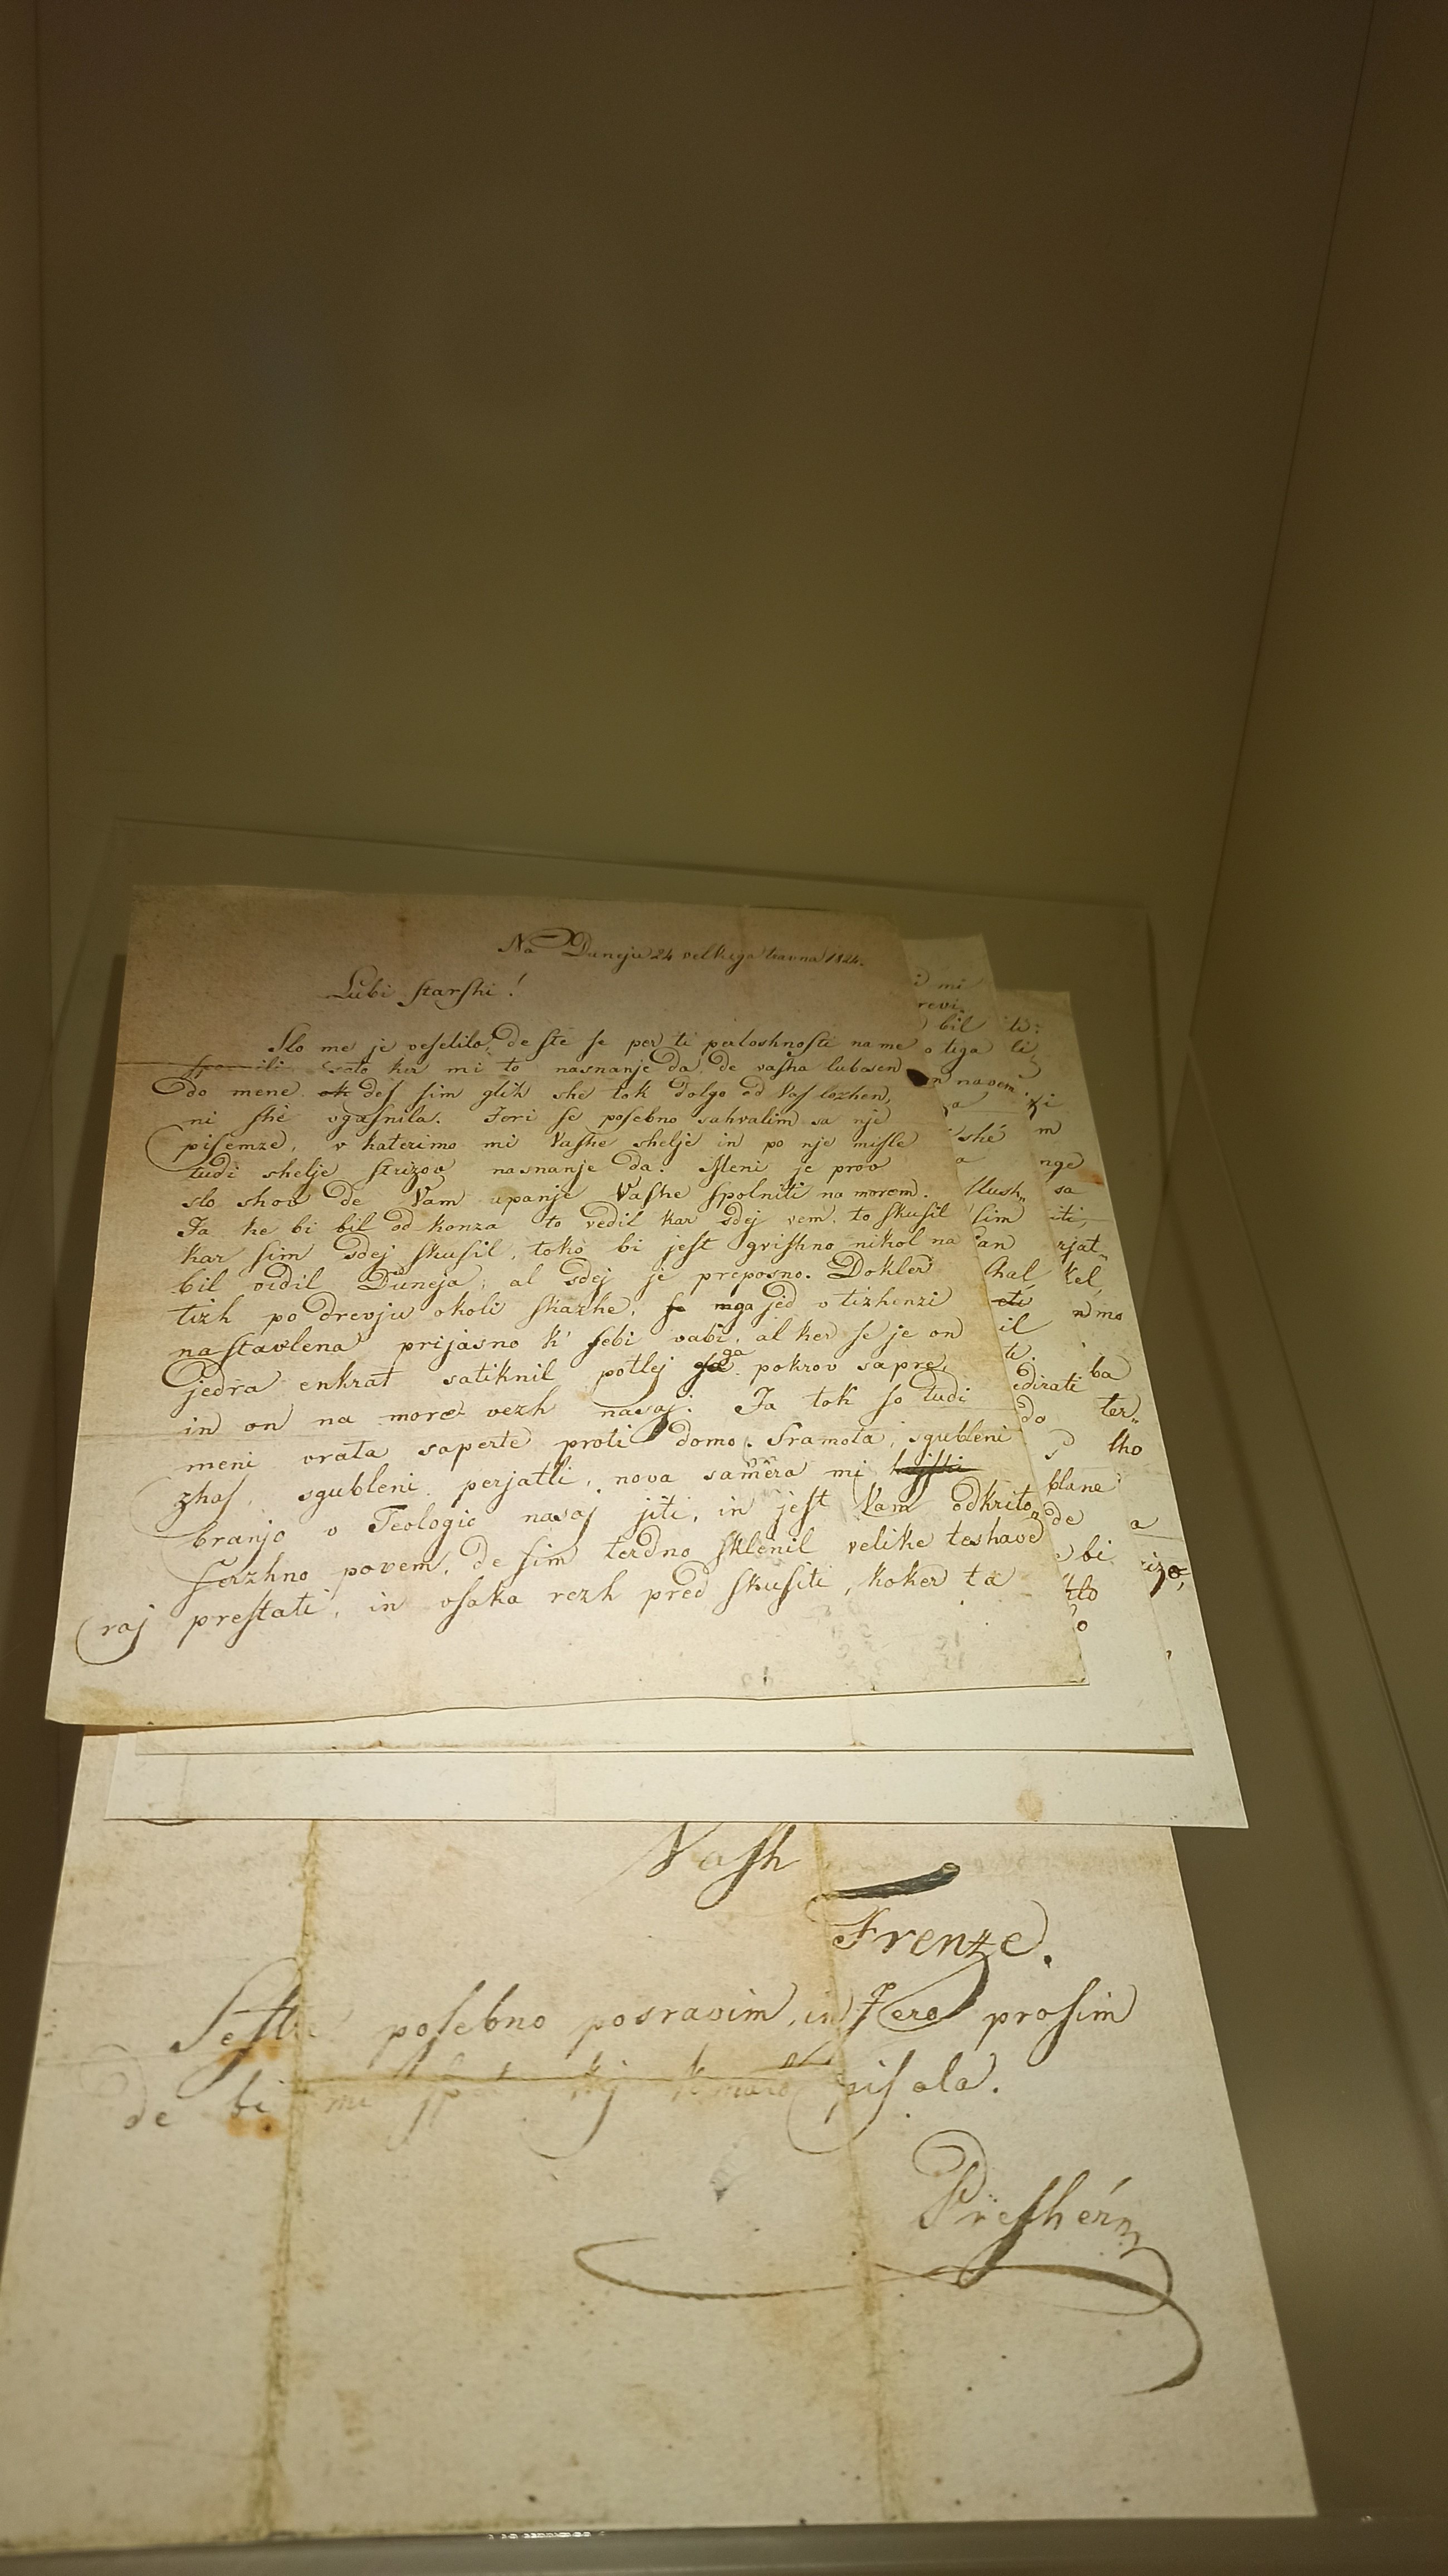 Na Duneju 24 velkega travna 1824.
Lubi starſhi!
Slo me je veſelilo, de ſte ſe per ti perloshnoſti na me
ſpomnili sato ker mi to nasnanje da, de vaſha lubesen
do mene ok deſ ſim glih she tok dolgo od Vaſ lozhen,
ni ſhè vgaſnila. Jeri ſe poſebno sahvalim sa nje
piſemze, v katerimo mi Vaſhe shelje in po nje miſle
tudi shelje ſtrizov nasnanje da. Meni je prov
slo shov de Vam upanje Vaſhe ſpolniti na morem.
Ja ke bi bil od konza to vedil kar sdej vem, to ſkuſil
kar ſim sdej ſkuſil, tokò bi jeſt gviſhno nikol na
bil vidil Duneja, al sdej je preposno. Dokler
tizh po drevju okoli ſkazhe, ſe mga jéd v tizhenzi
naſtavlena prijasno k' ſebi vabi, al ker ſe je on
jedra enkrat satiknil potlej ga pokrov sapre,
in on na more vezh nasaj. Ja tok ſo tudi
meni vrata saperte proti domo. Sramota, sgubleni
zhaſ, sgubleni perjatli, nova samera mi
branjo v Teologio nasaj jiti, in jeſt Vam odkrito
ſerzhno povem, de ſim terdno ſklenil velike teshave
raj preſtati, in vſaka rezh pred ſkuſiti, koker ta
i mi
revi
bil
o tiga
n navem
a
ſhé
a
ſluſh
ſim
an
hal
eti
il
ti
edirati
do
blane
de
bi
zlo
o
ti:
li
zi
m
nge
sa
iti,
rjat
kel
n'mo
ba
ter
lho
a
rizo,
Vaſh
Frenze.
Seſtre poſebno posravim, in Jero proſim
de bi mi kmalo piſala.
Preſhérn